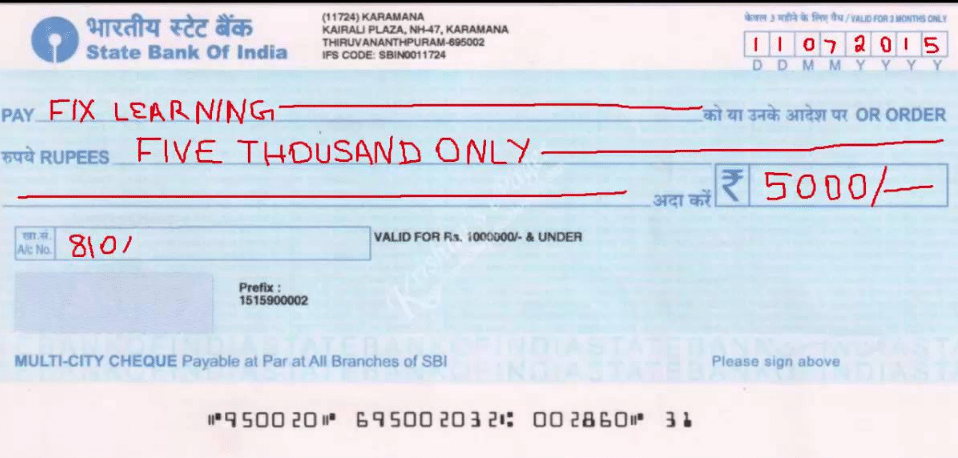 भारतीय स्टेट बैंक
State Bank Of India
(11724) KARAMANA
KAIRALI PLAZA, NH-47, KARAMANA
THIRUVANANTHPURAM-695002
IFS CODE: SBIN0011724
केवल 3 महीने के लिए वैध / VALID FOR 3 MONTHS ONLY
1 1 0 7 2 0 1 5
D D M M Y Y Y Y
PAY FIX LEARNING को या उनके आदेश पर OR ORDER
रुपये RUPEES FIVE THOUSAND ONLY
अदा करें ₹ 5000/-
खा.सं.
A/c No. 8101
VALID FOR Rs. 1000000/- & UNDER
Prefix :
1515900002
MULTI-CITY CHEQUE Payable at Par at All Branches of SBI
Please sign above
⑈950020⑈ 695002032⑆ 002860⑈ 31